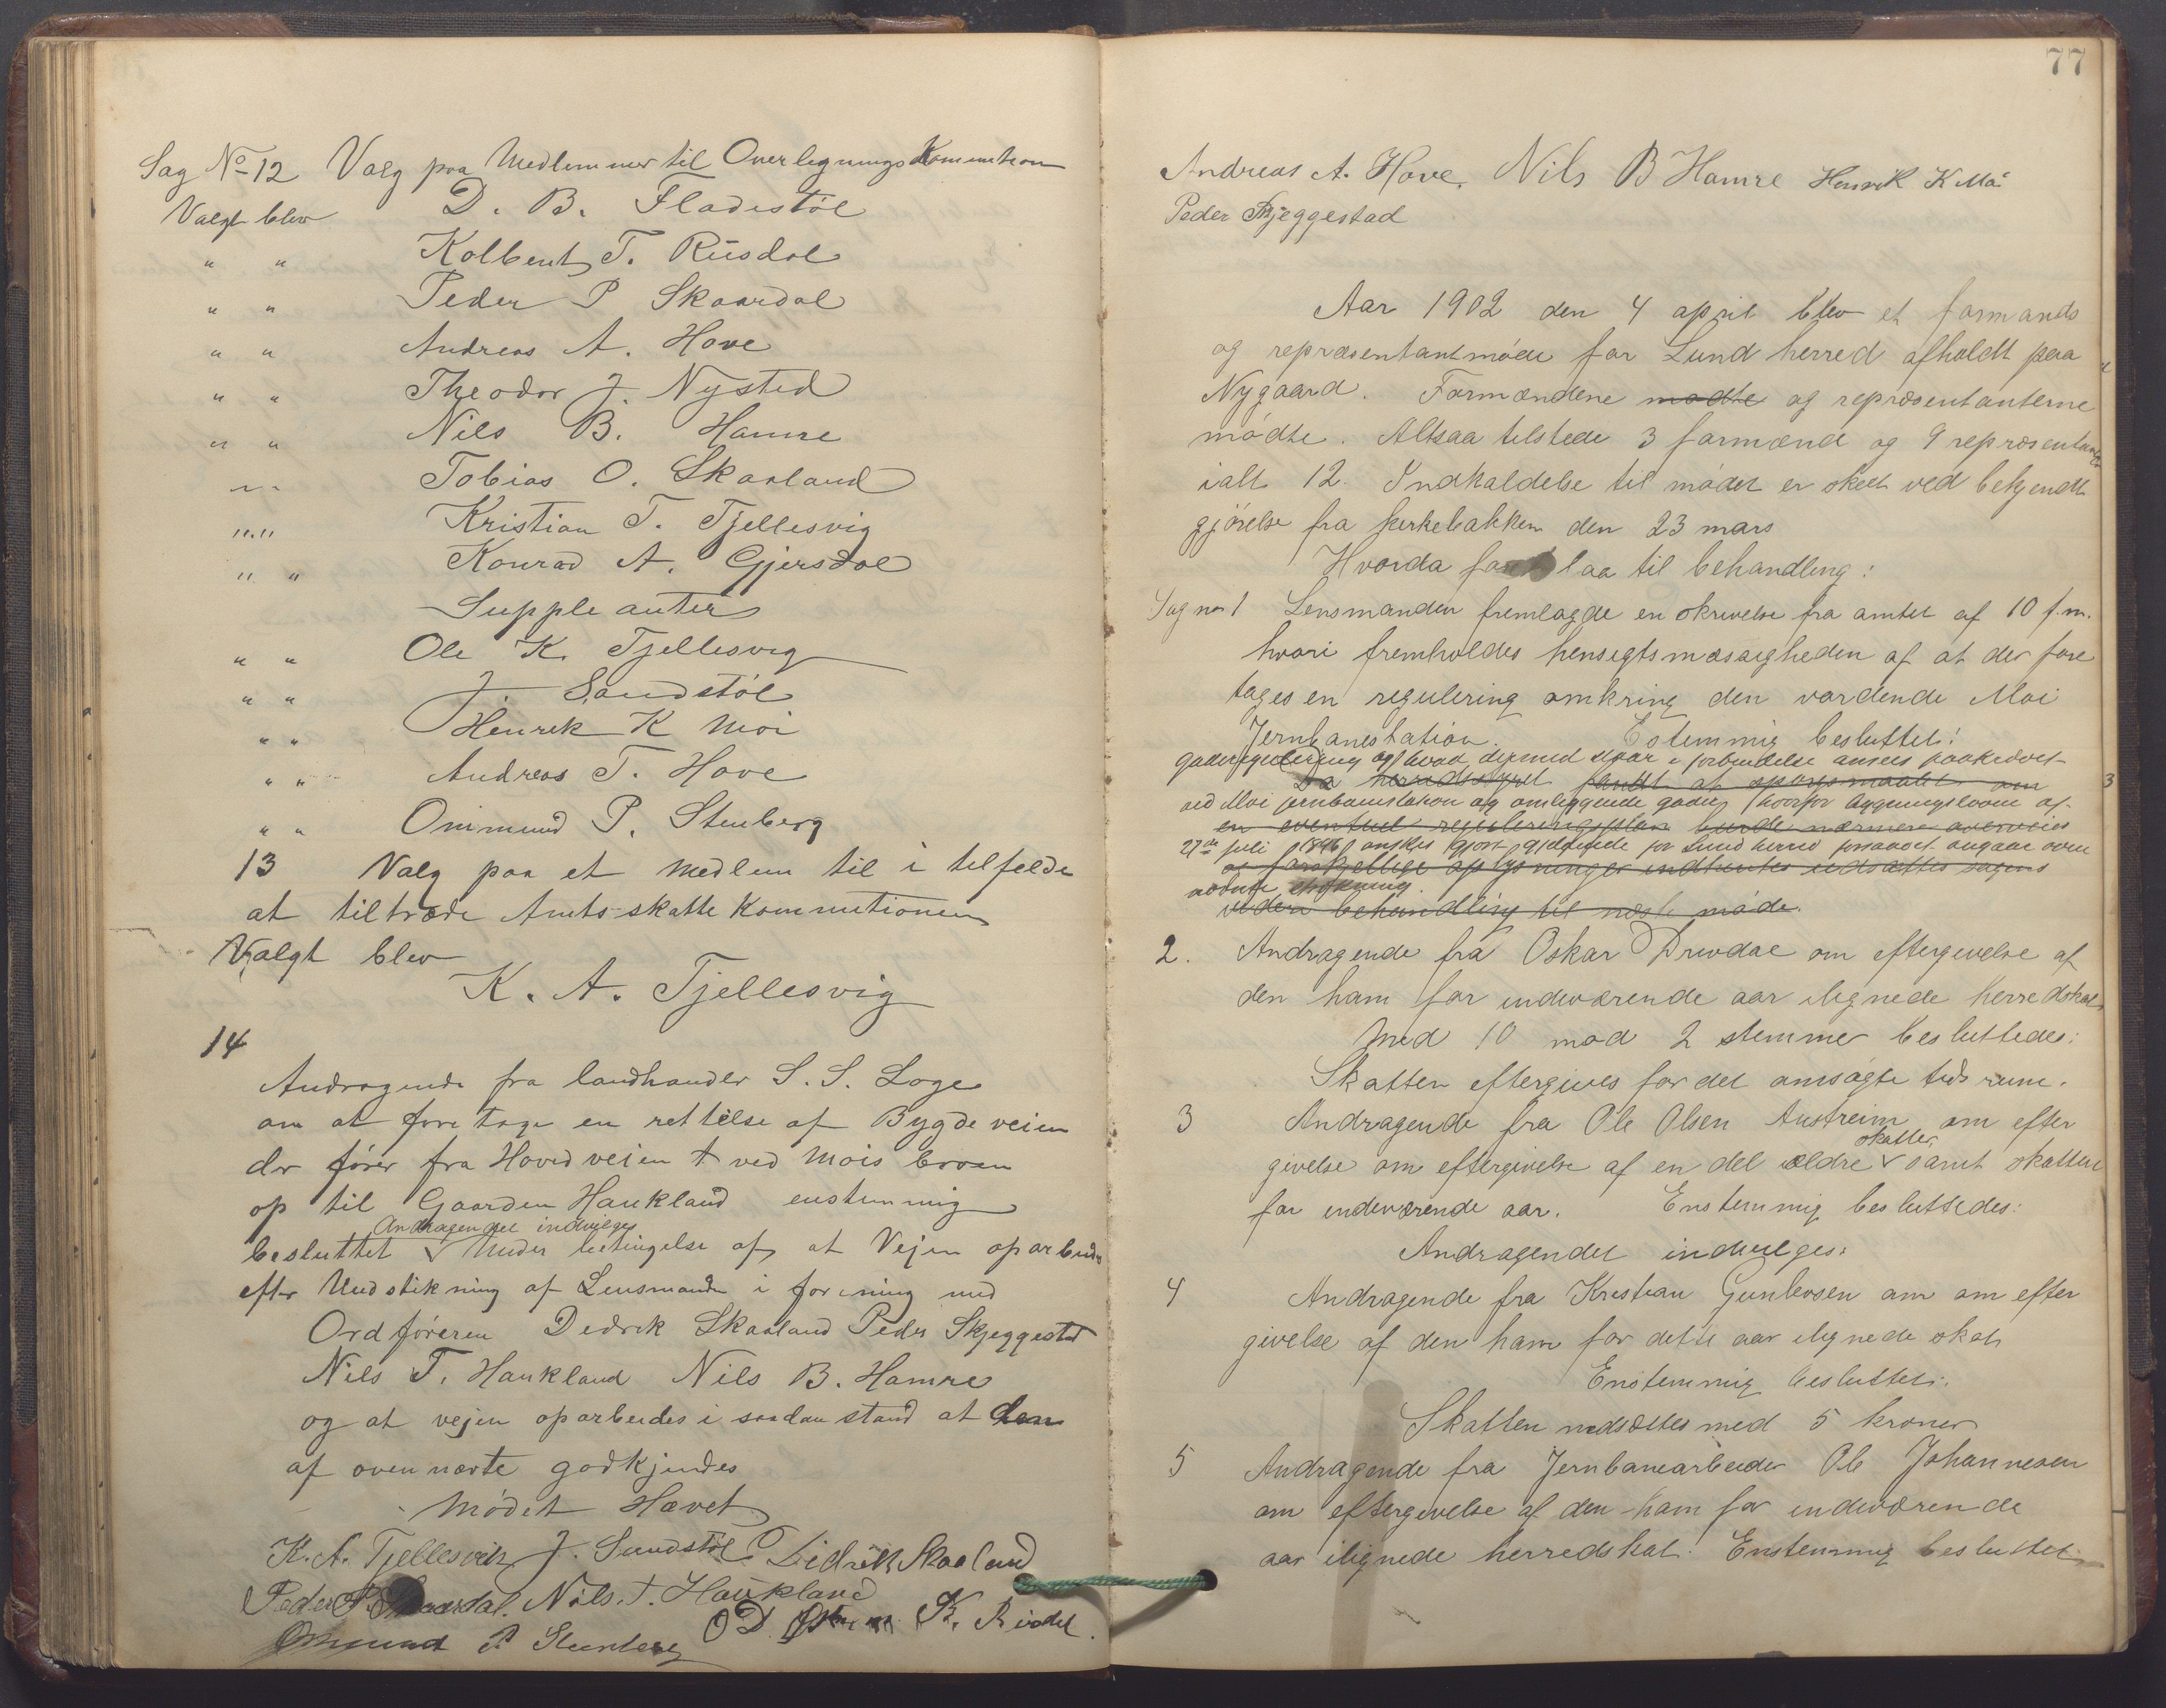 Sag No 12 Valg paa Medlemmer til Overlignings Kommission
Valgt blev D. B. Fladestöl
" " Kolbent T. Risdal
" " Peder P Skaardal
" " Andreas A. Hove
" " Theodor J. Nysted
" " Nils B. Hamre
" " Tobias O. Skaaland
" " Kristian T. Tjellesvig
" " Konrad A. Gjersdal
Suppleanter
" " Ole K. Tjellesvig
" " J. Sandstöl
" " Henrek K Moi
" " Andreas T. Hove
" " Ommund P. Stenberg
13 Valg paa et Medlem til i telfelde
at tiltræde Amtsskatte Kommitionen
Valgt blev
K. A. Tjellesvig
14
Andragende fra landhandler S. S. Loge
om at foretage en rettelse af Bygdeveien
der förer fra Hovedveien ved Mois broen
op til Gaarden Haukland enstemmig
Andragendet indvilges
besluttet under betingelse af at Vejen oparbeides
efter Uudstikning af Lensmanden i forening med
Ordföreren Dedrek Skaaland Peder Skjeggestad
Nils T. Haukland Nils B. Hamre
og at vejen oparbeides i saadan stand at den
af ovennævte godkjendes
Mödet Hævet
K. A. Tjellesvik J. Sandstöl Didrik Skaaland
Peder P. Skaardal. Nils. T. Haukland
Ommund P Stenberg O D K. Risdal.
77
Andreas A. Hove. Nils B Hamre Henrik K Moi
Peder Skjeggestad
Aar 1902 den 4 april blev et formands
og repræsentantmöde for Lund herred afholdt paa
Nygaard. Formændene mødte og repræsentanterne
mödte. Altsaa tilstede 3 formænd og 9 repræsentanter
ialt 12. Indkaldelse til mødet er skeet ved bekjendt
gjörelse fra kirkebakken den 23 mars
Hvorda forelaa til behandling:
Sag no 1 Lensmanden fremlagde en skrivelse fra amtet af 10 f.m.
hvori fremholdes hensigtsmæssigheden af at der fore
tages en regulering omkring den vordende Moi
Jernbanestation. Estemmig besluttet:
gaderegulering og hvad dermed staar i forbindelse ansees paakrævet
Da herredsstyret fandt at spørgsmaalet om
ved Moi jernbanestation og omliggende gader, hvorfor bygningsloven af
en eventuel reguleringsplan burde nærmere overveies
27de juli 1896 önskes gjort gjeldende for Lund herred forsaavet angaar oven
og forskjellige oplysninger indhentes udsættes sagens
nævnte strækning.
videre behandling til næste møde.
2. Andragende fra Oskar Drivdal om eftergivelse af
den ham for indeværende aar ilignede herredskat
Med 10 mod 2 stemmer besluttedes:
Skatten eftergives for det ansøgte tidsrum.
3 Andragende fra Ole Olsen Austreim om efter
skatter,
givelse om eftergivelse af en del ældre samt skatten
for indeværende aar. Enstemmig besluttedes:
Andragendet indvilges:
4 Andragende fra Kristian Gunleosen om om efter
givelse af den ham for dette aar ilignede skat
Enstemmig besluttet:
Skatten nedsættes med 5 kroner
5 Andragende fra Jernbanearbeider Ole Johannesen
om eftergivelse af den ham for indeværende
aar ilignede herredskat. Enstemmig besluttet